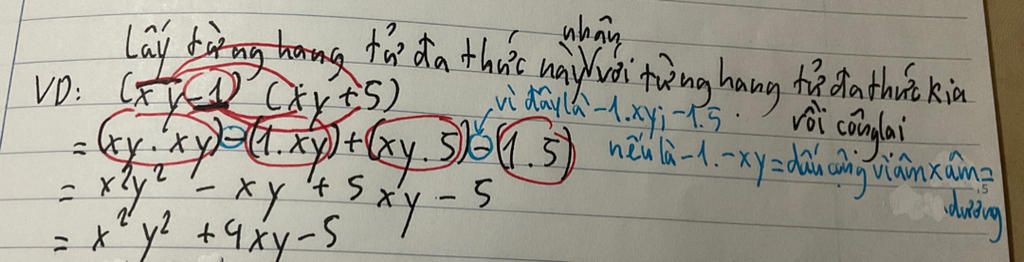 Lấy từng hạng tử đa thức này nhân với từng hạng tử đa thức kia
rồi cộng lại
VD: (xy-1) (xy+5)
= (xy.xy)-(1.xy)+(xy.5)-(1.5)
vì đây là -1.xy; -1.5.
nếu là -1.-xy = dấu cộng vì âm x âm =
dương
= x²y² - xy + 5xy - 5
= x²y² + 4xy - 5